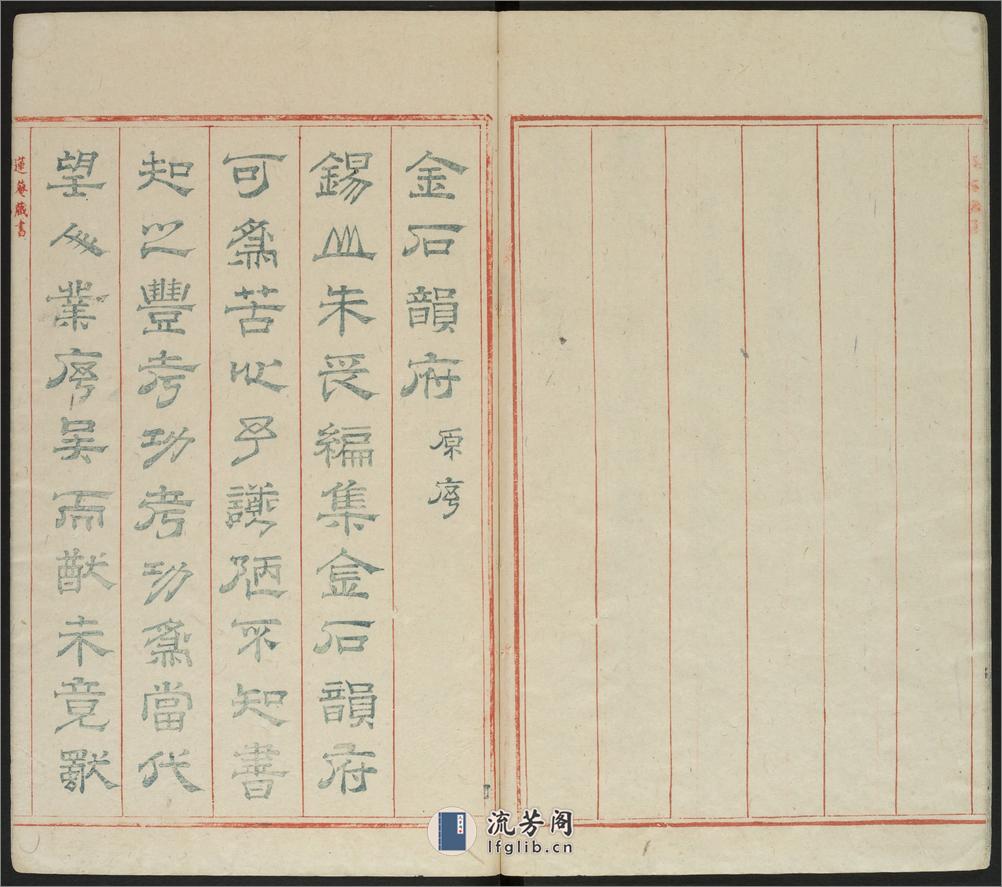 金石韻府 原序
錫山朱編集金石韻府
可為苦心予譾陋不知書
知之豐考功考功為當代
望人業序矣而猷未竟
蓮菴藏書
流芳阁
lfglib.cn